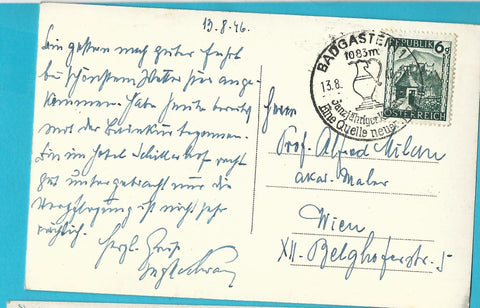 13.8.46.
Bin gestern nach guter Fahrt
bei schönstem Wetter hier ange-
kommen. Habe heute bereits
mit der Badekur begonnen.
Bin im Hotel Schillerhof recht
gut untergebracht nur die
Verpflegung ist nicht sehr
reichlich.
Herzl. Grüße
BADGASTEIN
1083m
13.8.
Eine Quelle neuer
REPUBLIK 6g
ÖSTERREICH
Herrn
Prof. Alfred Milan
akad. Maler
Wien
XII. Belghoferstr. 5